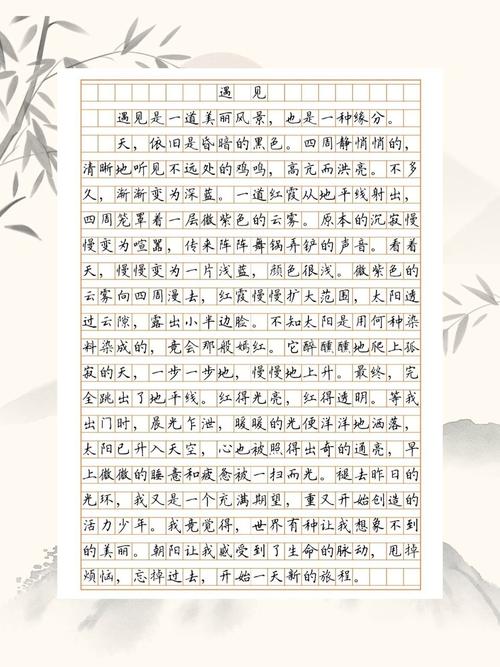 遇见
遇见是一道美丽风景，也是一种缘分。
天，依旧是昏暗的黑色。四周静悄悄的，
清晰地听见不远处的鸡鸣，高亢而洪亮。不多
久，渐渐变为深蓝。一道红霞从地平线射出，
四周笼罩着一层微紫色的云雾。原本的沉寂慢
慢变为喧嚣，传来阵阵舞锅弄铲的声音。看着
天，慢慢变为一片浅蓝，颜色很浅。微紫色的
云雾向四周漫去，红霞慢慢扩大范围，太阳透
过云隙，露出小半边脸。不知太阳是用何种染
料染成的，竟会那般嫣红。它醉醺醺地爬上孤
寂的天，一步一步地，慢慢地上升。最终，完
全跳出了地平线。红得光亮，红得透明。等我
出门时，晨光乍泄，暖暖的光便洋洋地洒落，
太阳已升入天空，心也被照得出奇的通亮，早
上微微的睡意和疲惫被一扫而光。褪去昨日的
光环，我又是一个充满期望，重又开始创造的
活力少年。我竟觉得，世界有种让我想象不到
的美丽。朝阳让我感受到了生命的脉动，甩掉
烦恼，忘掉过去，开始一天新的旅程。